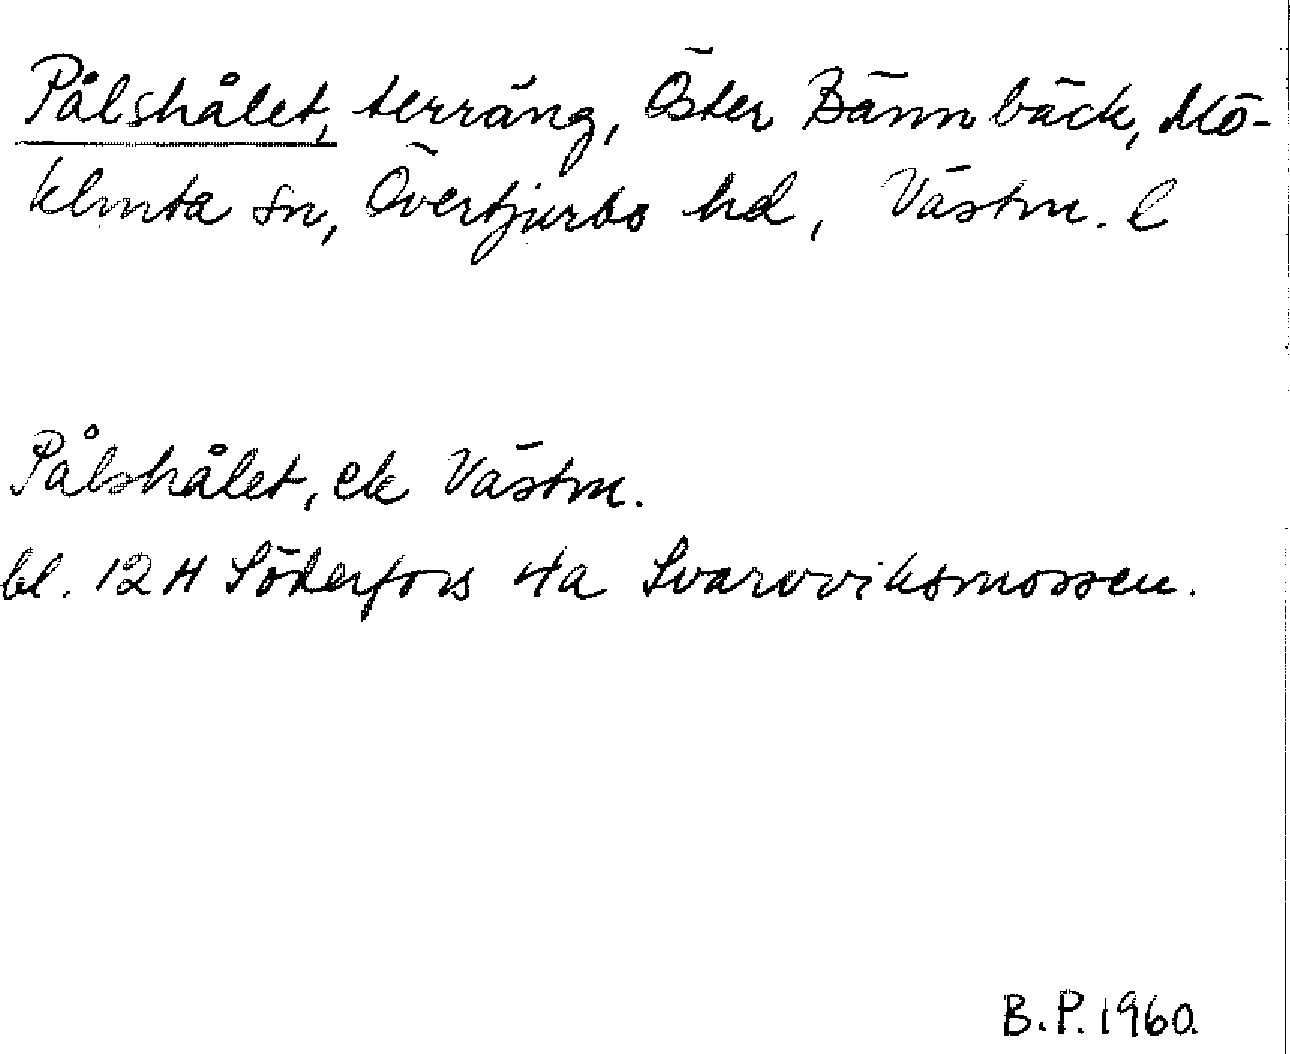 Pålshålet, terräng, Öster Bännbäck, Mö-
klinta sn, Övertjurbo hd, Västm. l
Pålshålet, ek Västm.
bl. 12 H Söderfors 4a Svartviksmossen.
B.P. 1960.